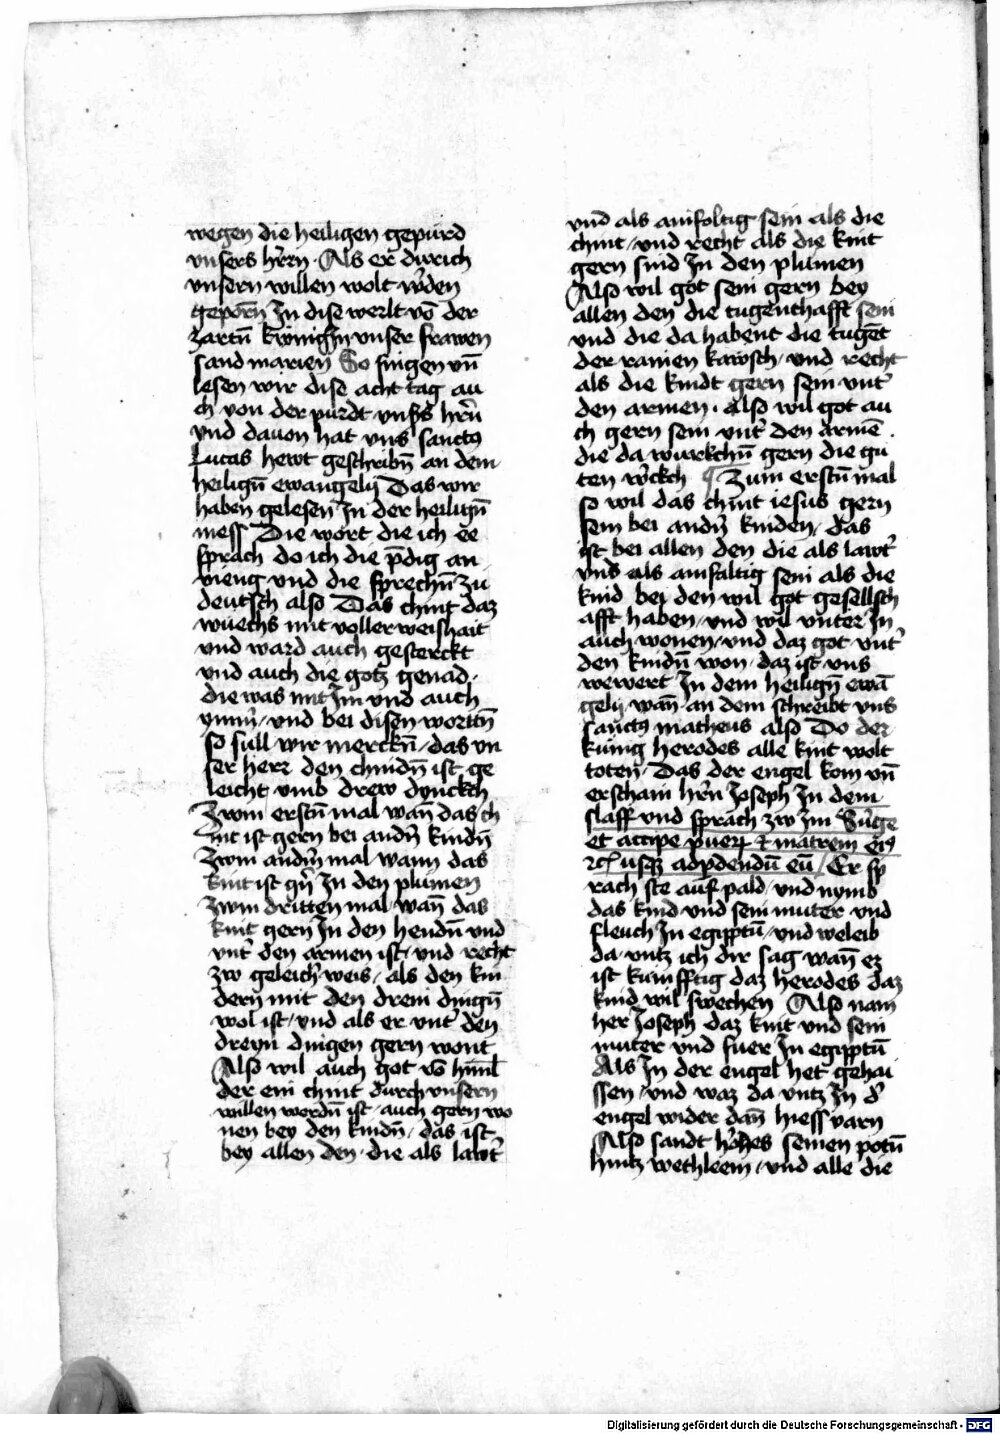 wegen die heiligen gepurd
vnsers hrrn · Als er durich
vnsern willen wolt wden
geporn In dise werlt vō der
zartn̄ kwnigin vnser frawen
sand marien̄ So singen vn̄
lesen wir dise acht tag au
ch von der purdt vnsrs hrn̄
vnd dauon hat vns sanctus
Lucas hewt geschribn̄ an dem
heilign̄ ewangelij Das wir
haben gelesen In der heilign̄
mess Die wort die ich ee
sprach do ich die pdig an
vieng vnd die sprechn̄ zu
deutsch also Das chint daz
wuechs mit voller weishait
vnd ward auch gesterckt
vnd auch die gotz genad ·
die was mit Im vnd auch
ynnn̄ / vnd bei disen wortn̄
so sull wir merckn̄ / das vn
ser herr den chindn̄ ist ge
leicht vmb drew dynckch
Zwm erstn̄ mal wan̄ das ch
int ist gern bei andn̄ kindn̄
Zwm andm̄ mal wann das
kint ist gn̄ In den plumen
Zwm dritten mal wan̄ das
kint gern In den hendn̄ vnd
vnt' den armen ist / vnd recht
zw geleich' weis / als den kin
dern mit den drein dingn̄
wol ist / vnd als er vnt' den
dreyn dingen gern wont
Also wil auch got vō himl̄
der ein chint durch vnsern
willen wordn̄ ist / auch gern wo
nen bey den kindn̄ / das ist
bey allen den · die als lawt'
vnd als ainfoltig sein als die
chint / vnd recht als die kint
gern sind In den plumen
Also wil got sein gern bey
allen den die tugenthafft sein
vnd die da habent die tugēt
der rainen kawsch / vnd recht
als die kindt gern sein vnt'
den armen · also wil got au
ch gern sein vnt' den armē ·
die da wurkchn̄ gern die gu
ten w'ckch ¶ Zum erstn̄ mal
so wil das chint iesus gern
sein bei andn̄ kinden / das
ist bei allen den die als lawt'
vnd als ainfaltig sein als die
kind bei den wil got gesellsch
afft haben / vnd wil vnter In
auch wonen / vnd daz got vnt'
den kindn̄ won · daz ist vns
wewert In dem heilign̄ ewā
gelij · wan̄ an dem schreibt vns
sanctus matheus also Do der
kunig herodes alle kint wolt
toten̄ · Das der engel kom vn̄
erschain hrn̄ Joseph In dem
slaff vnd sprach zw Im Surge
et accipe puerum et matrem eius
usque ad eū / Er sp
rach ste auf pald / vnd nymb
das kind vnd sein muter vnd
fleuch In egipptū / vnd weleib
da · vntz ich dir sag wan̄ ez
ist kunfftig daz herodes daz
kind wil swechen Also nam
her Joseph daz kint vnd sein
muter vnd fuer In egipptū
Als In der engel het gehai
ssen / vnd waz da vntz In d'
engel wider dan̄ hiess varn
Also sandt h'odes seinen potn̄
hintz wethleem / vnd alle die
Digitalisierung gefördert durch die Deutsche Forschungsgemeinschaft - DFG